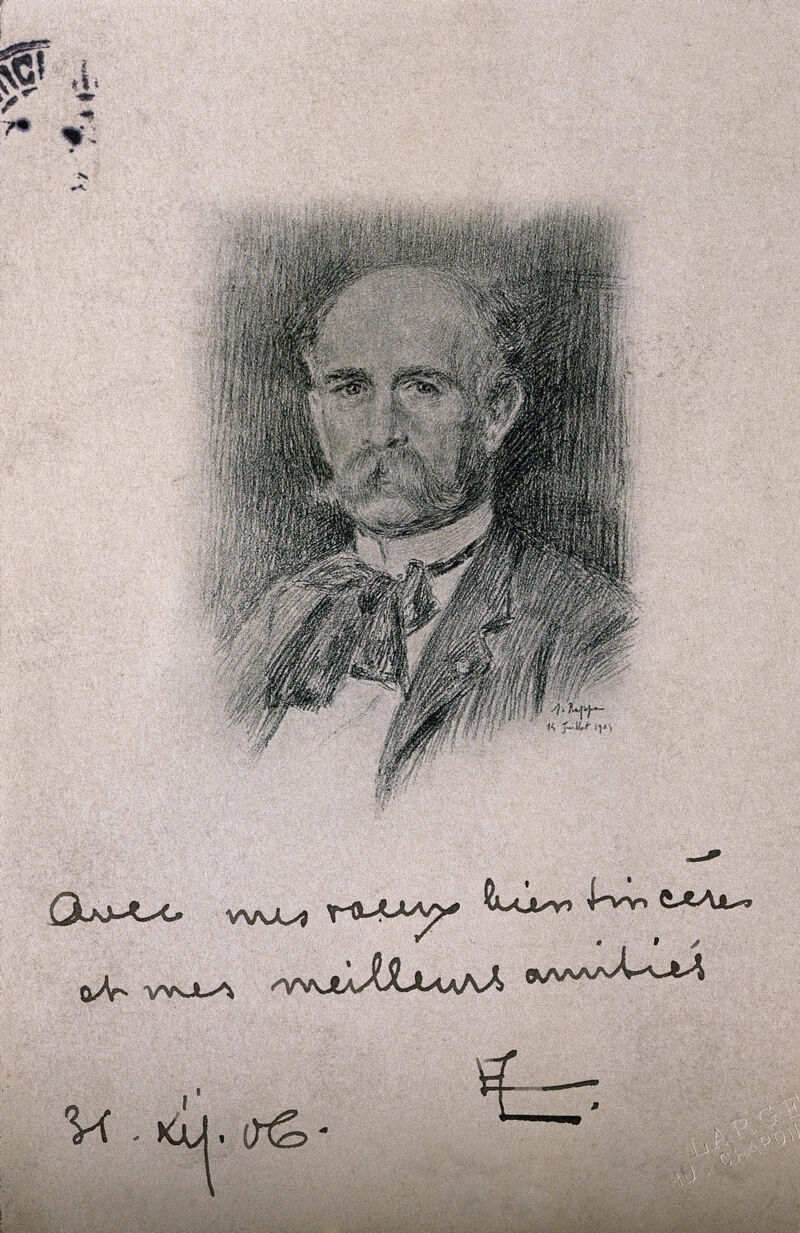 J. Rapp
14 Juillet 1903
Avec mes voeux bien sincères
et mes meilleurs amitiés
31. Xij. 06.
LARGE
CHAPON